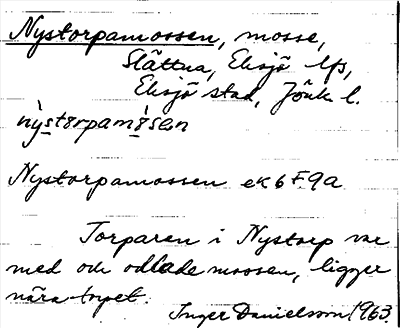 Nystorpamossen, mosse,
Slättna, Eksjö lfs,
Eksjö stad, Jönk. l.
nỳstorpamòsen
Nystorpamossen ek 6 F 9a
Torparen i Nystorp var
med och odlade mossen, ligger
nära torpet.
Inger Danielsson 1963.